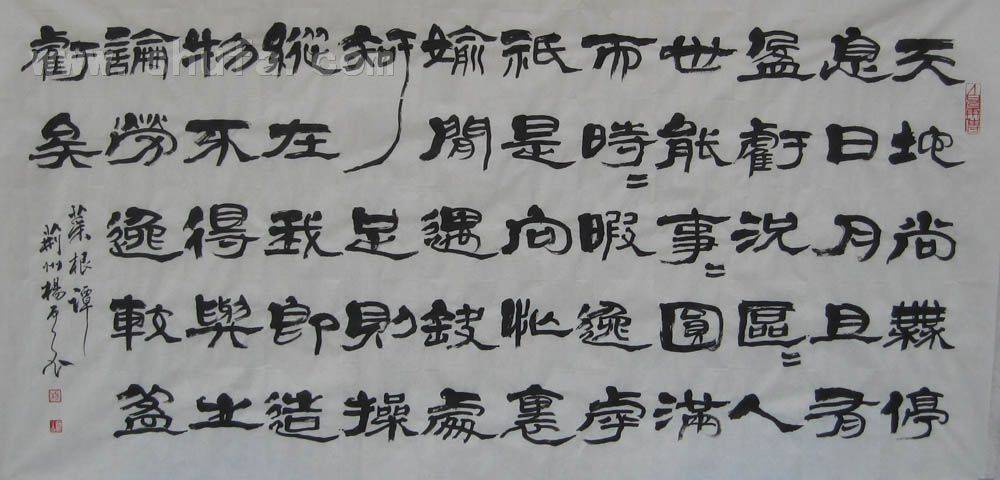 天地尚無停
息日月且有
盈虧況區〻人
世能事〻圓滿
而時〻暇逸乎
祇是向忙裏
媮閒遇缺處
知足則操
縱在我即造
物不得與之
論勞逸較盈
虧矣
菜根譚
荊州楊